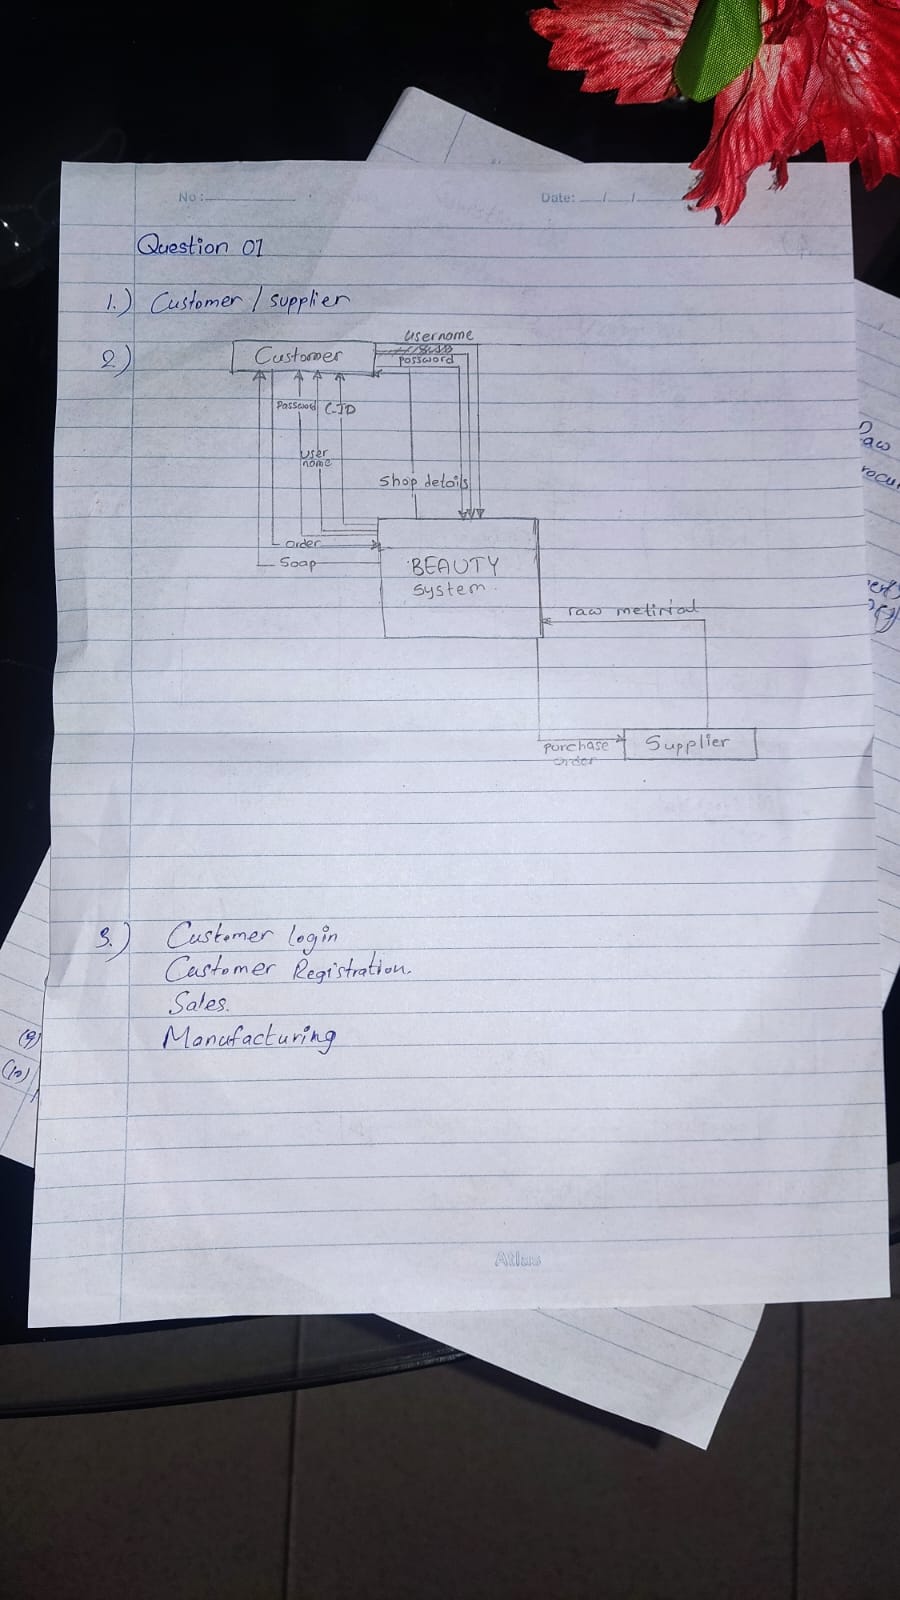 No:
Date: / /
Question 01
1.) Customer / supplier
2)
Customer
username
password
Password
C-ID
user
name
Shop details
order
Soap
BEAUTY
system
raw metirial
purchase
order
Supplier
3.) Customer login
Customer Registration.
Sales.
Manufacturing
(9)
(10)
Raw
Atlas